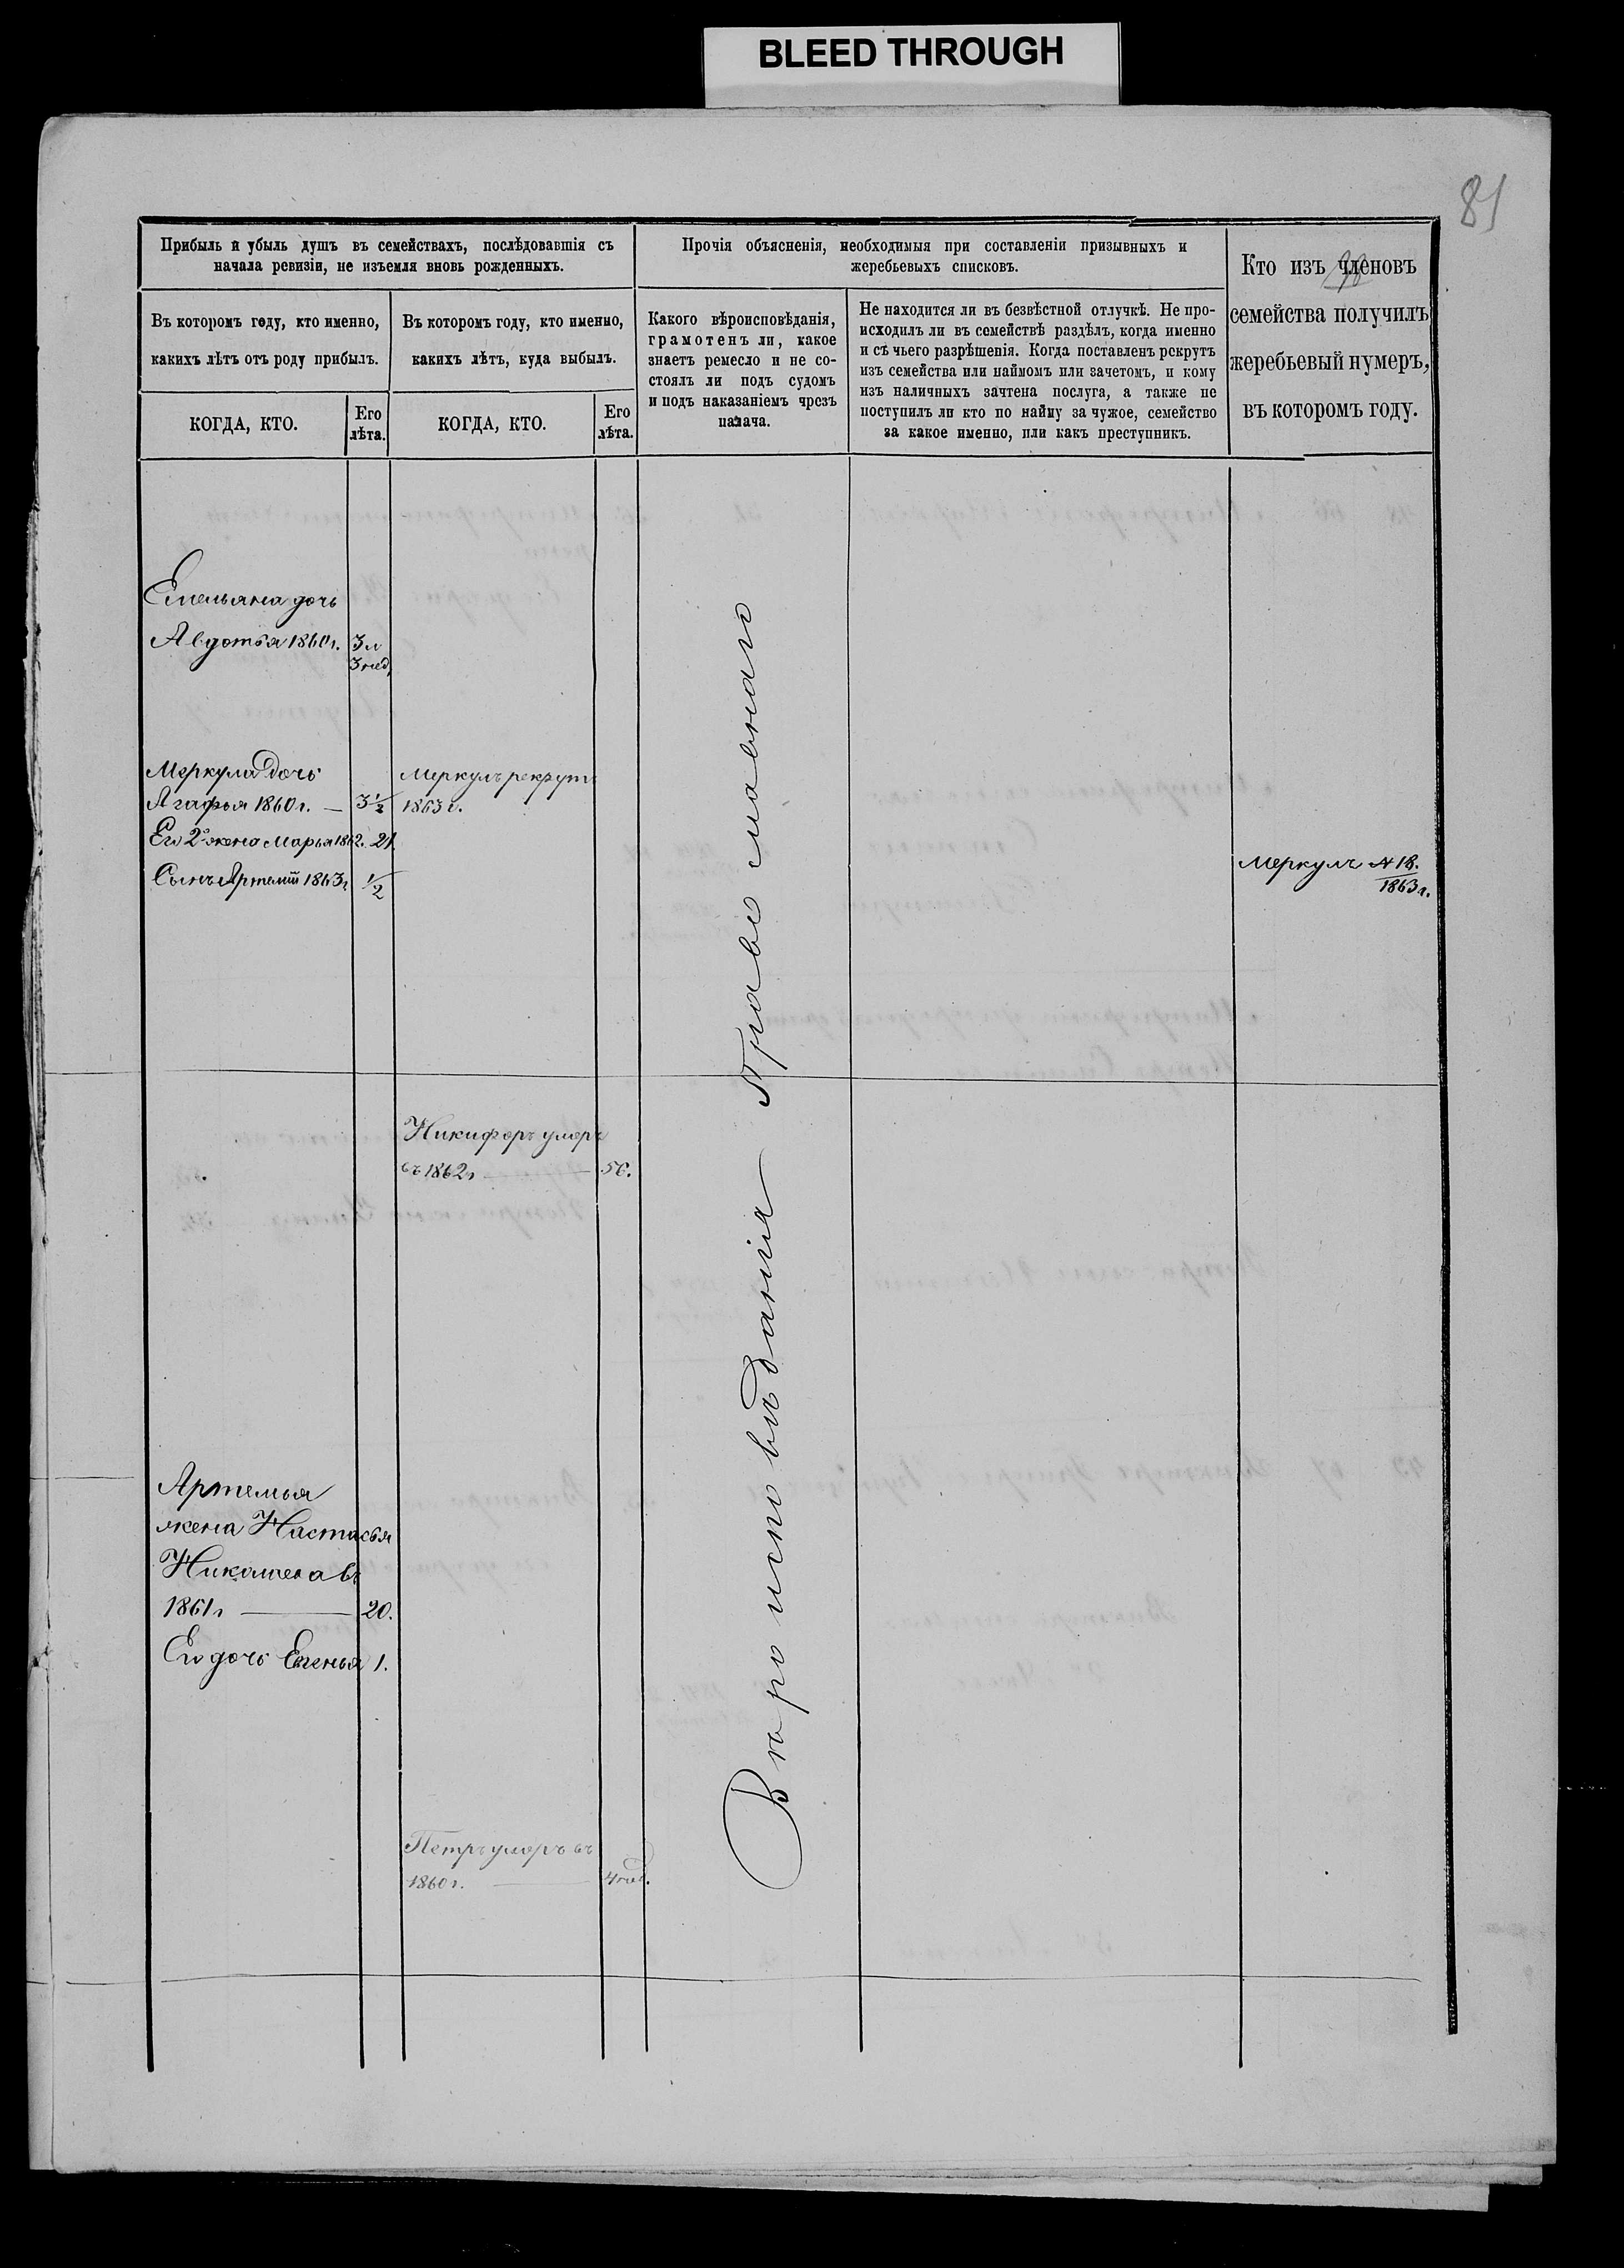 BLEED THROUGH
81
Прибыль и убыль душъ въ семействахъ, послѣдовавшія съ
начала ревизіи, не изъемля вновь рожденныхъ.
Въ которомъ году, кто именно,
какихъ лѣтъ отъ роду прибылъ.
КОГДА, КТО.
Его
лѣта.
Въ которомъ году, кто именно,
какихъ лѣтъ, куда выбылъ.
КОГДА, КТО.
Его
лѣта.
Прочія объясненія, необходимыя при составленіи призывныхъ и
жеребьевыхъ списковъ.
Какого вѣроисповѣданія,
грамотенъ ли, какое
знаетъ ремесло и не со-
стоялъ ли подъ судомъ
и подъ наказаніемъ чрезъ
палача.
Не находится ли въ безвѣстной отлучкѣ. Не про-
исходилъ ли въ семействѣ раздѣлъ, когда именно
и съ чьего разрѣшенія. Когда поставленъ рекрутъ
изъ семейства или наймомъ или зачетомъ, и кому
изъ наличныхъ зачтена послуга, а также не
поступилъ ли кто по найму за чужое, семейство
за какое именно, или какъ преступникъ.
Кто изъ членовъ
семейства получилъ
жеребьевый нумеръ,
въ которомъ году.
Емельяна дочь
Авдотья 1860г. 3 л
3 нед.
Меркула дочь
Агафья 1860г. — 3 1/2
Его 2я жена Марья 1862. 21.
Сынъ Артемій 1863г 1/2
Меркулъ рекрутъ
1863 г.
Меркулъ № 18.
1863 г.
Никифоръ умеръ
въ 1862г — 50.
Артемья
жена Настасья
въ
1861г — 20.
Его дочь Евгенья 1.
Петръ умеръ въ
1860 г. — 4 нед.
Вѣроисповѣданія Православнаго